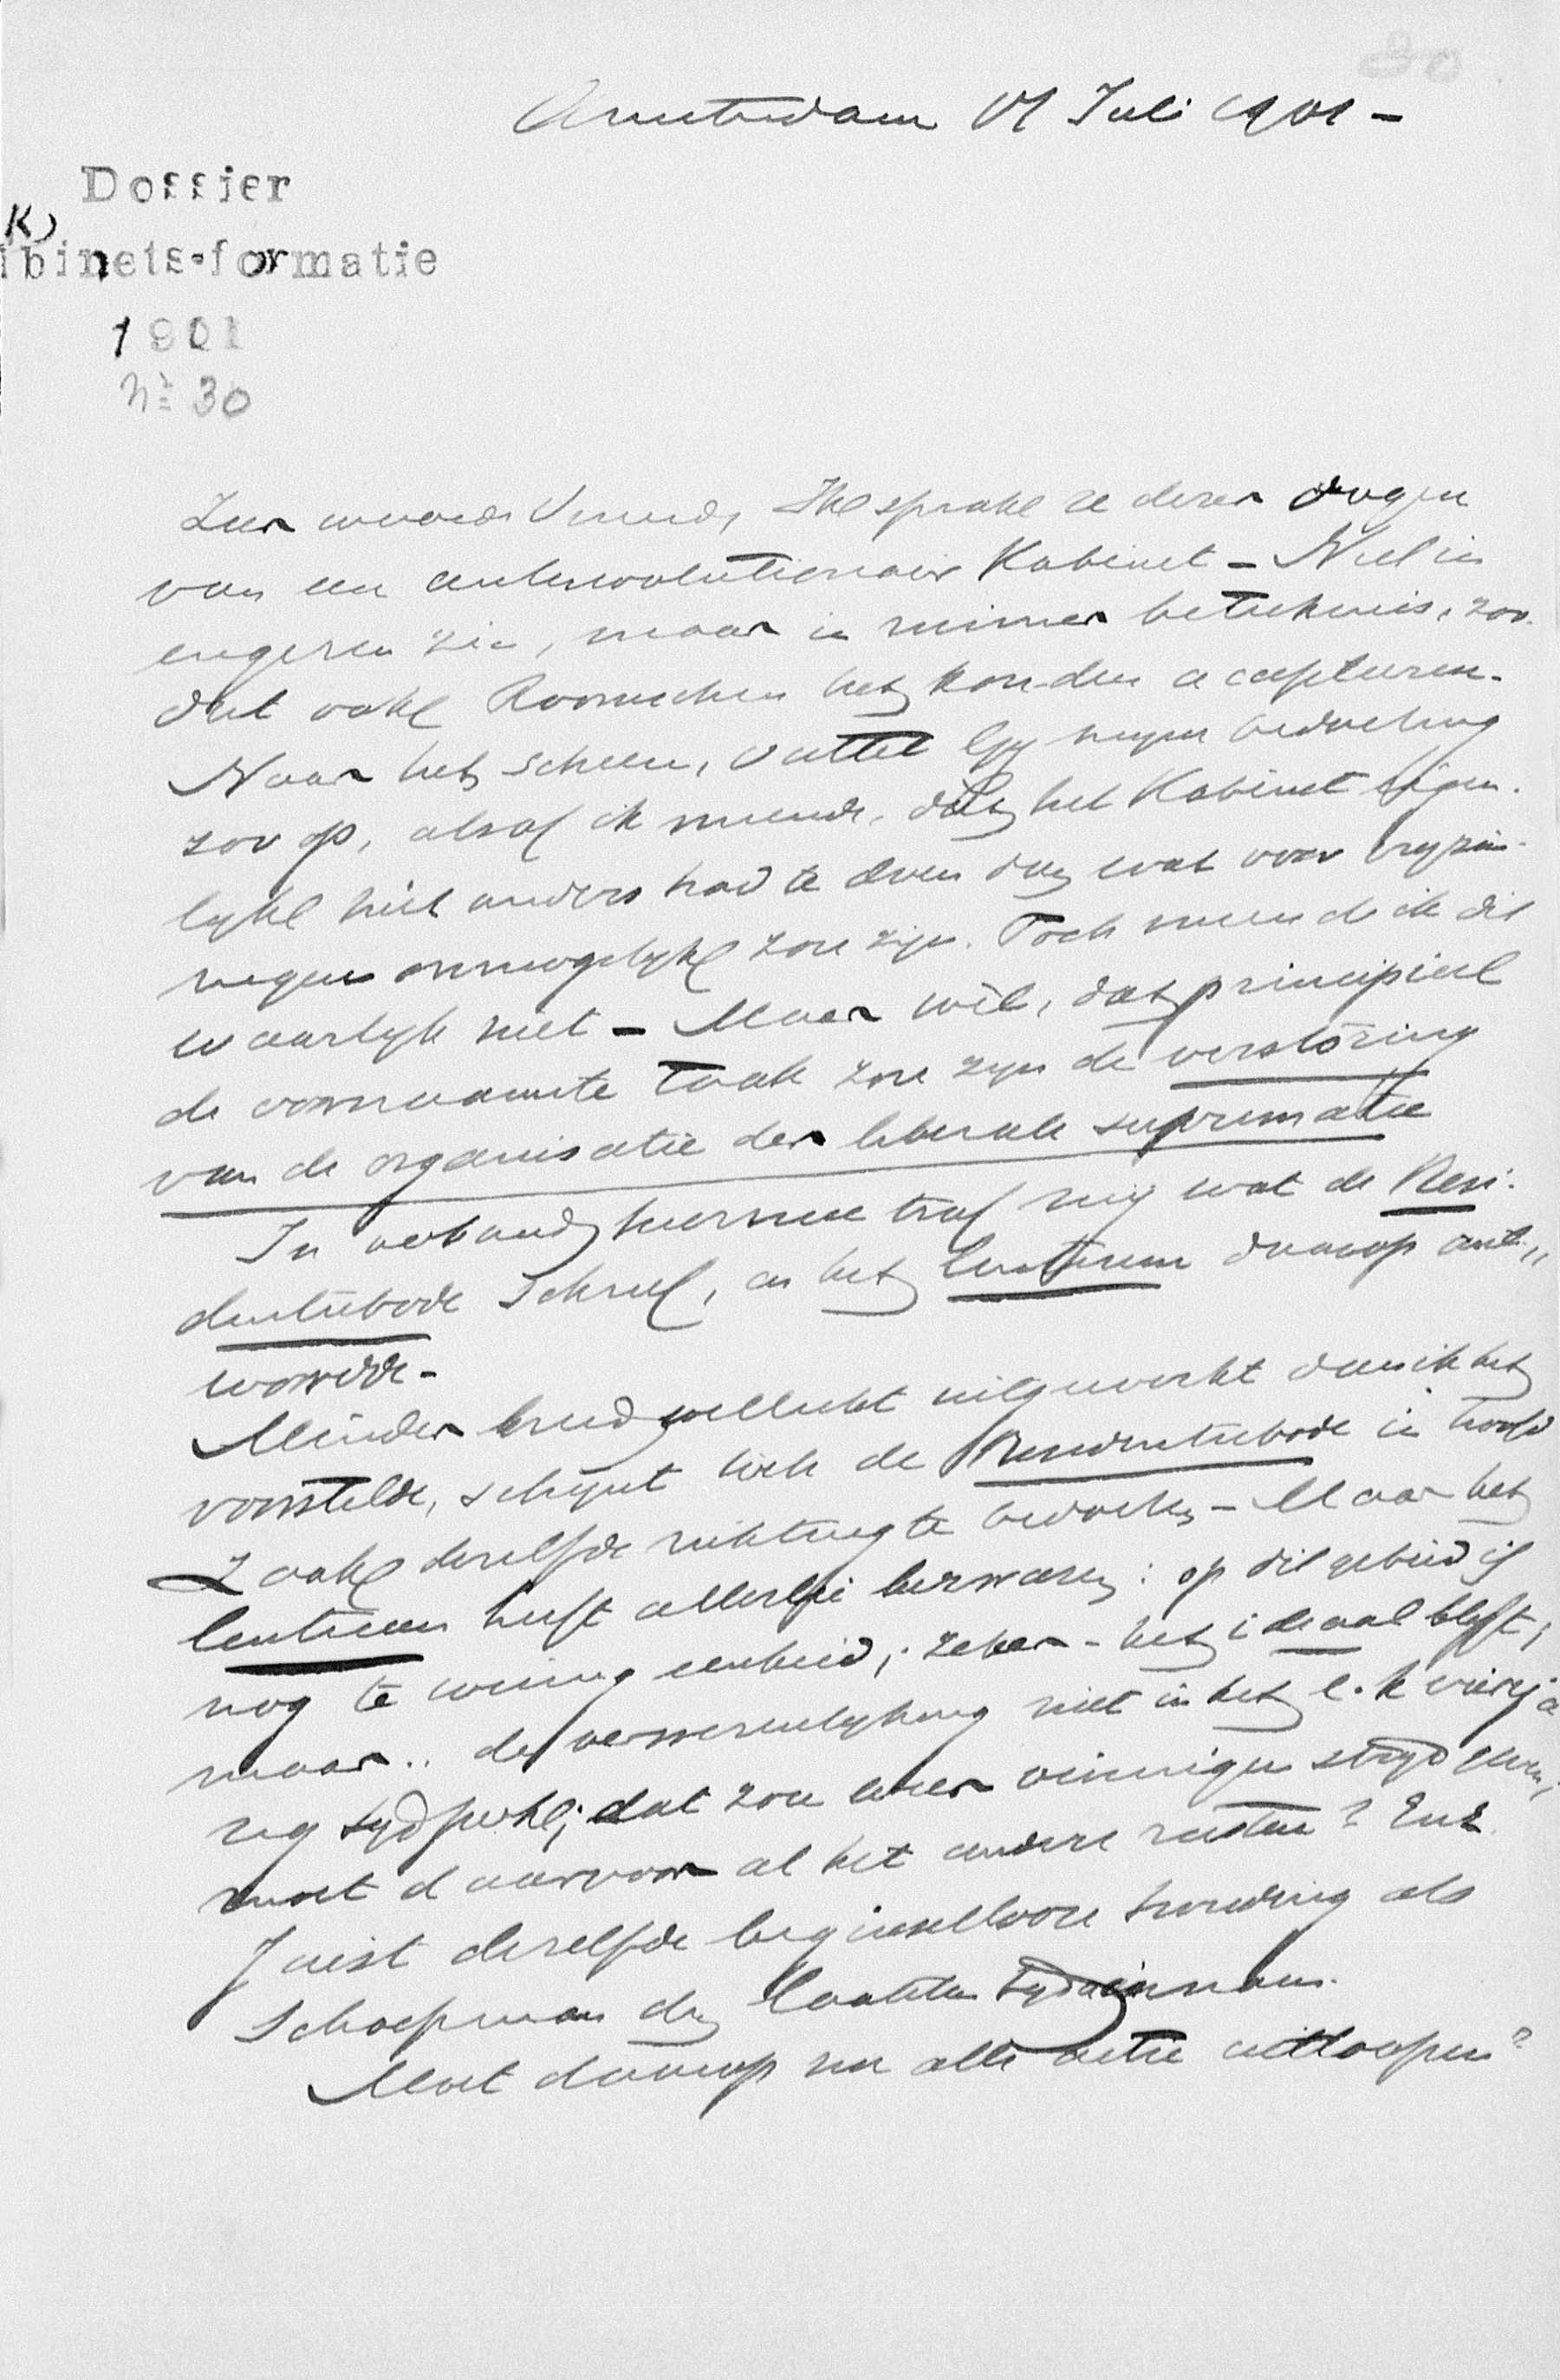 30
Amsterdam 17 Juli 1901 -
Dossier
K)
binets-formatie
1901
No 30
Zeer waarde Vriend, Ik sprak ze dezer dagen
van een antirevolutionair Kabinet - Niet in
engeren zin, maar in ruimer beteekenis, zoo-
dat ook Roomschen het konden accepteeren.
Naar het scheen, vattet Gy myne bedoeling
zoo op, alsof ik meende, dat het Kabinet eigen-
lyk niet anders had te doen dan wat voor vryzin-
nigen onmogelyk zou zyn. Toch meende ik dit
waarlyk niet - Maar wèl, dat principieel
de voornaamste taak zou zyn de verstoring
van de organisatie der liberale suprematie
In verband hiermee trof mij wat de Resi-
dentiebode schreef, en het Centrum daarop ant-
woordde -
Minder breed wellicht uitgewerkt dan ik het
voorstelde, schynt toch de Residentiebode in hoofd
zaak dezelfde richting te bedoelen - Maar het
Centrum heeft allerlei bezwaren: op dit gebied is
nog te weinig eenheid; zeker - het ideaal blyft;
maar .. de verwezenlyking niet in het e.k. vierja
rig tydperk; dat zou weer vinnigen stryd geven;
moet daarvoor al het andere rusten? Enz.
Juist dezelfde beginsellooze houding als
Schaepman den laatsten tyd innam.
Moet daarop nu alle actie uitloopen?